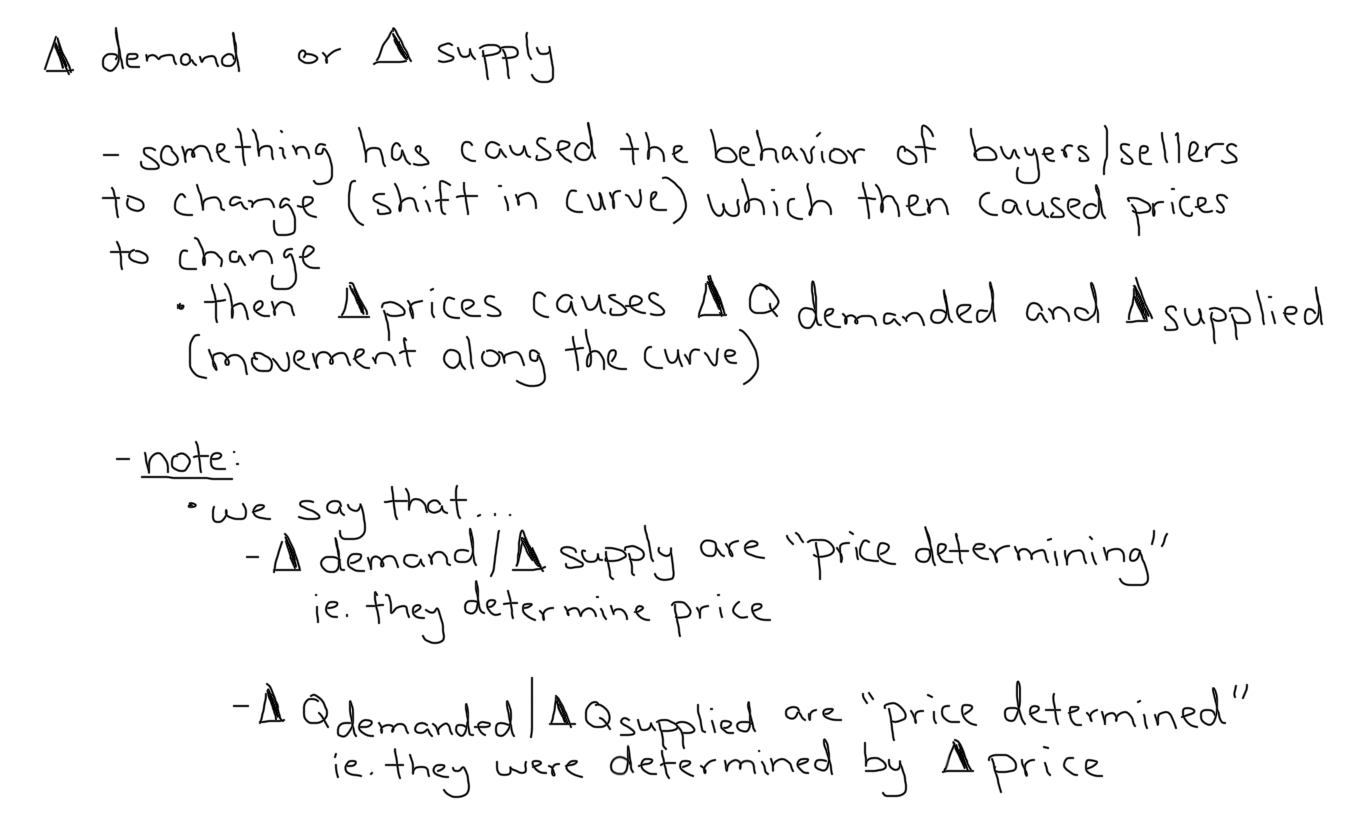 Δ demand or Δ supply
- something has caused the behavior of buyers/sellers
to change (shift in curve) which then caused prices
to change
• then Δ prices causes Δ Q demanded and Δ supplied
(movement along the curve)
- note:
• we say that...
- Δ demand/Δ supply are "price determining"
ie. they determine price
- Δ Q demanded/Δ Q supplied are "price determined"
ie. they were determined by Δ price